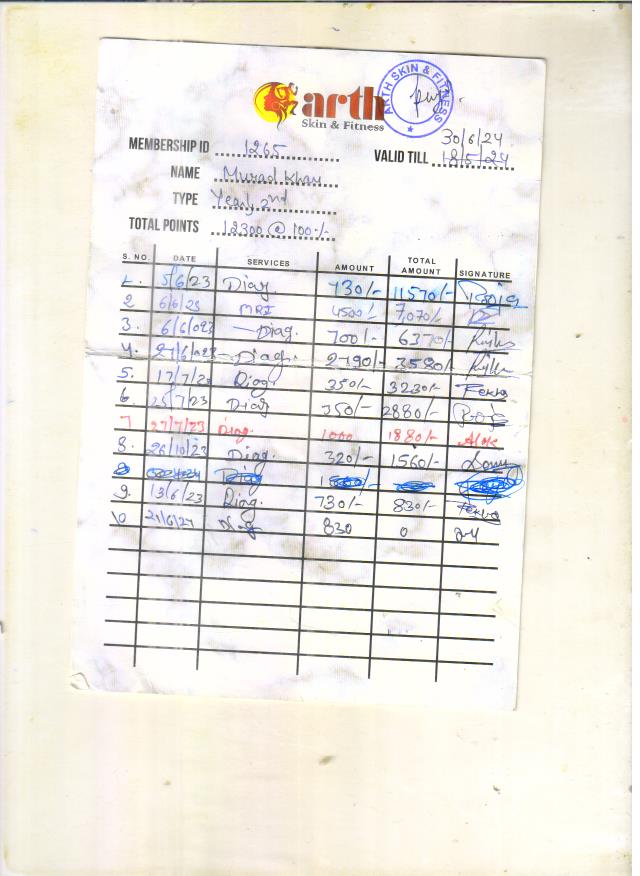 ARTH SKIN & FITNESS
arth
Skin & Fitness
30/6/24
MEMBERSHIP ID 1265
VALID TILL 18/5/24
NAME Murad Khan
TYPE Yearly 2nd
TOTAL POINTS 12300 @ 100/-
S. NO. DATE SERVICES AMOUNT TOTAL AMOUNT SIGNATURE
1. 5/6/23 Diag 730/- 11570/-
2 6/6/23 MRI 4500/- 7,070/-
3. 6/6/023 Diag. 700/- 6370/-
4. 27/6/023 Diag. 2790/- 3580/-
5. 17/7/23 Diag. 350/- 3230/-
6. 25/7/23 Diag 350/- 2880/-
7 27/7/23 Diag. 1000 1880/- Alok
8. 26/10/23 Diag. 320/- 1560/-
9. 13/6/23 Diag. 730/- 830/-
10 21/6/24 Diag 830 0